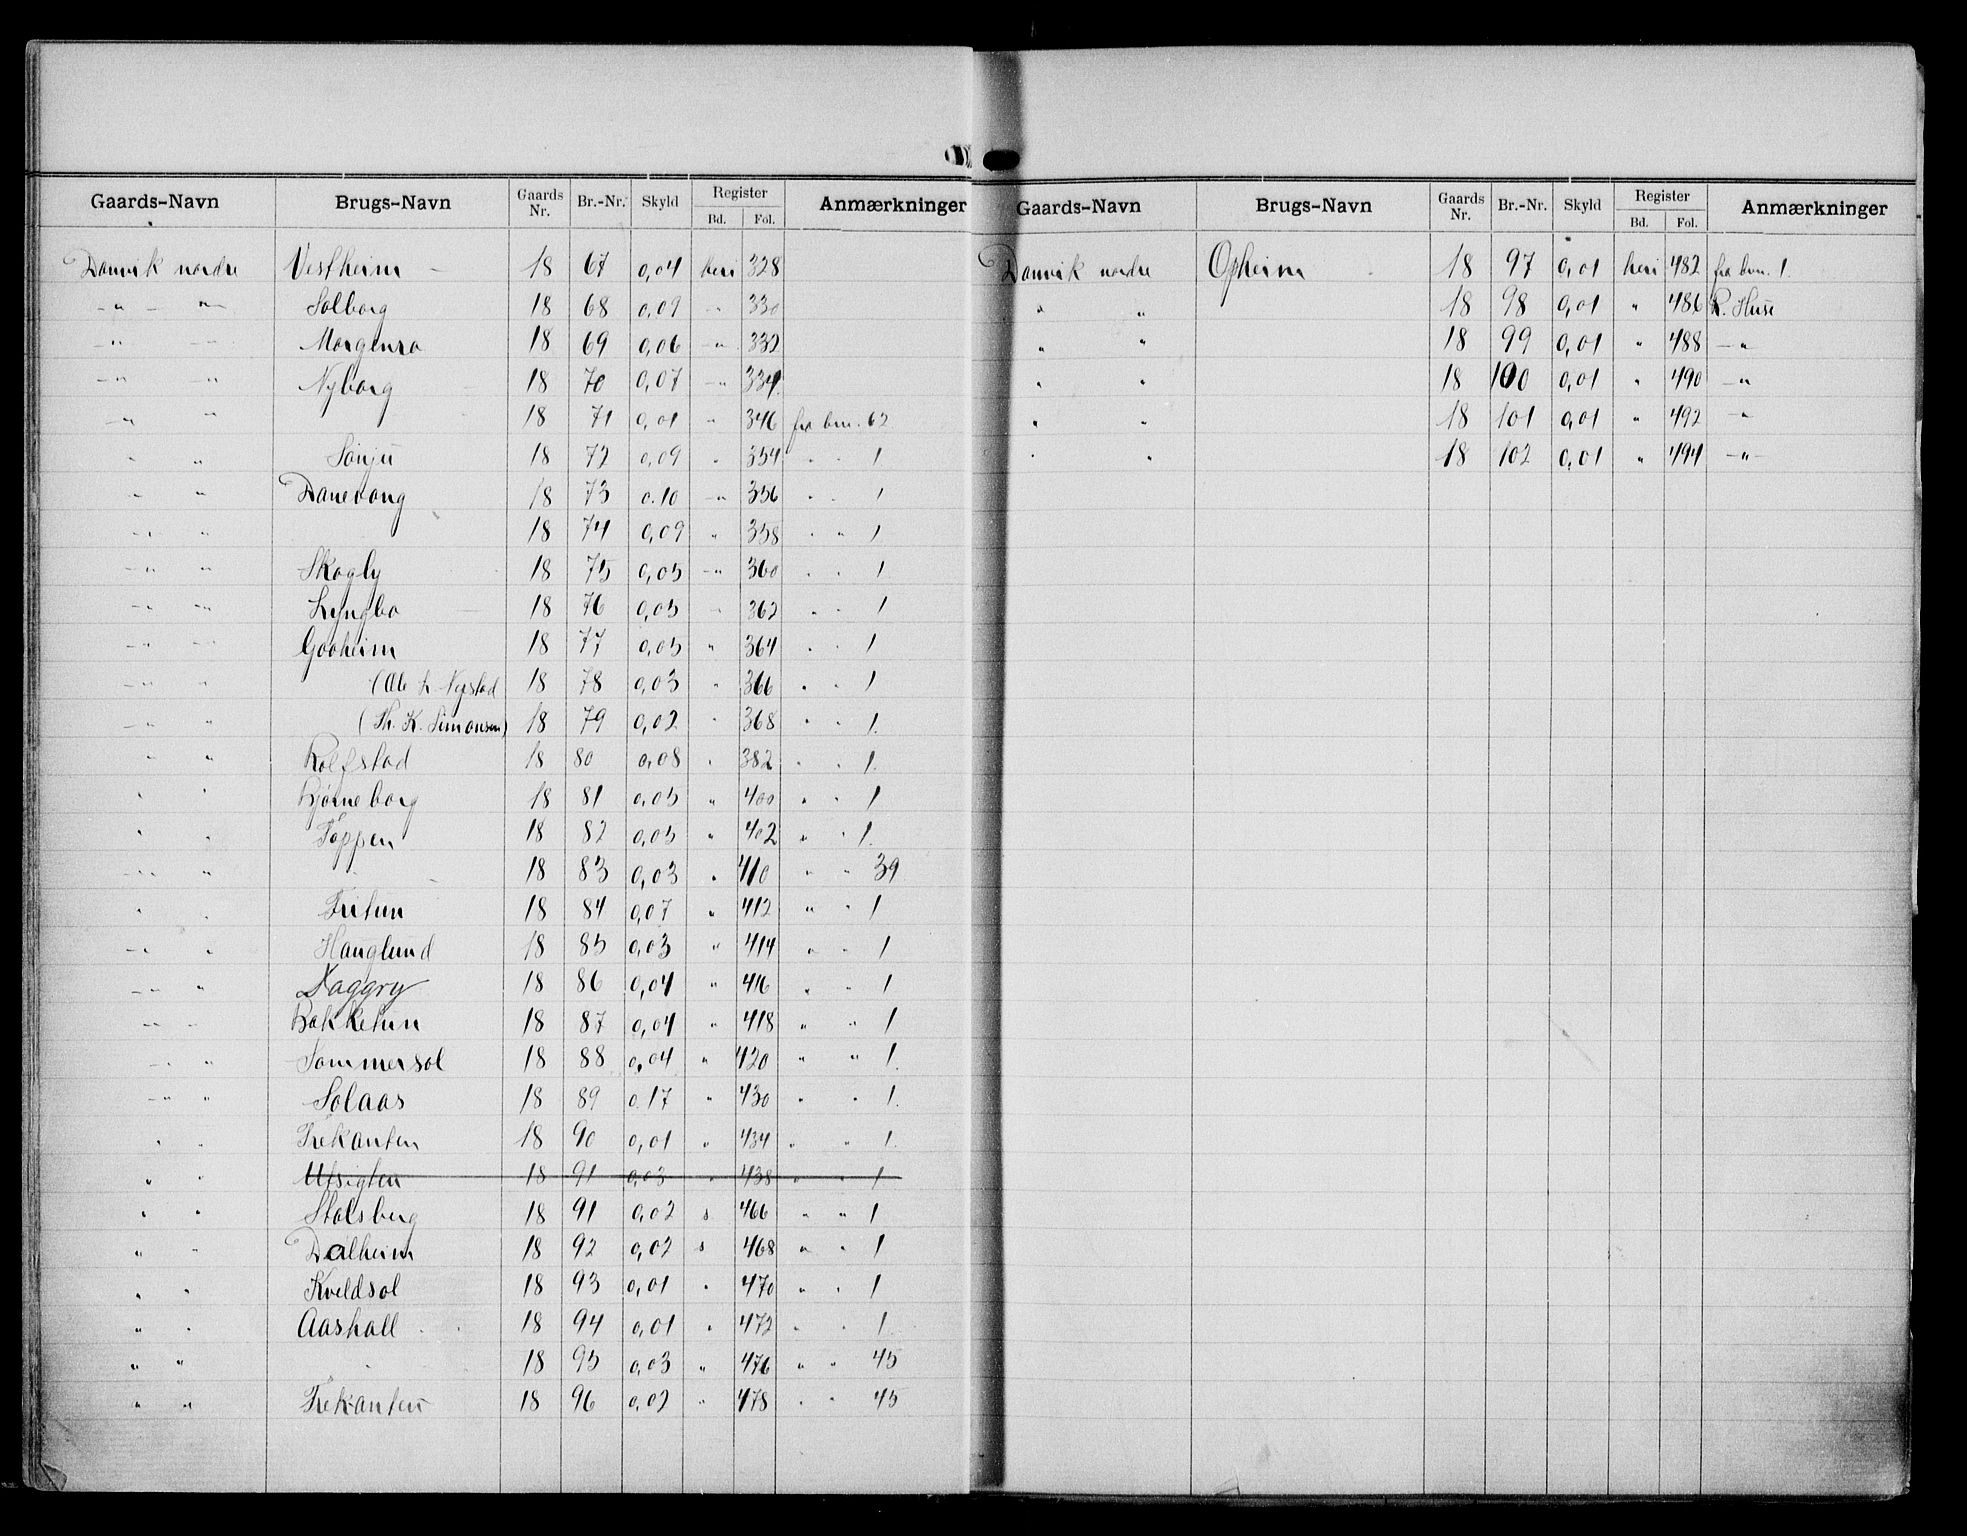 Gaards-Navn Brugs-Navn Gaards Nr. Br.-Nr. Skyld Register Bd. Fol. Anmærkninger
Danvik nordre Vestheim 18 67 0,04 heri 328
" " Solborg 18 68 0,09 " 330
" " Morgenro 18 69 0,06 " 332
" " Nyborg 18 70 0,07 " 334
" " 18 71 0,01 " 346 fra bnr. 62
" " 18 72 0,09 " 354 " " 1
" " Danevang 18 73 0.10 " 356 " " 1
" " 18 74 0,09 " 358 " " 1
" " Skogly 18 75 0,05 " 360 " " 1
" " Lyngbo 18 76 0,05 " 362 " " 1
" " Godheim 18 77 0,05 " 364 " " 1
" " (Ole L. Nystad 18 78 0,03 " 366 " " 1
" " (Th. K. Simonsen) 18 79 0,02 " 368 " " 1.
" " Rolfstad 18 80 0,08 " 382 " " 1.
" " Bjørneborg 18 81 0,05 " 400 " " 1
" " Toppen 18 82 0,05 " 402 " " 1.
" " 18 83 0,03 " 410 " " 39
" " Fritun 18 84 0,07 " 412 " " 1
" " Hauglund 18 85 0,03 " 414 " " 1
" " Daggry 18 86 0,04 " 416 " " 1
" " Bakketun 18 87 0,04 " 418 " " 1
" " Sommersol 18 88 0,04 " 420 " " 1.
" " Solaas 18 89 0.17 " 430 " " 1.
" " Trekanten 18 90 0,01 " 434 " " 1.
" " Utsigten 18 91 0,03 " 438 " " 1
" " Stolsberg 18 91 0,02 s 466 " " 1
" " Dalheim 18 92 0,02 s 468 " " 1
" " Kveldsol 18 93 0,01 " 470 " " 1
" " Aashall 18 94 0,01 " 472 " " 1.
" " 18 95 0,03 " 476 " " 45
" " Trekanten 18 96 0,02 " 478 " " 45
Gaards-Navn Brugs-Navn Gaards Nr. Br.-Nr. Skyld Register Bd. Fol. Anmærkninger
Danvik nordre Opheim 18 97 0,01 heri 482 fra bnr. 1.
" " 18 98 0,01 " 486 R. Huse
" " 18 99 0,01 " 488 "
" " 18 100 0,01 " 490 "
" " 18 101 0,01 " 492 "
" " 18 102 0,01 " 494 "